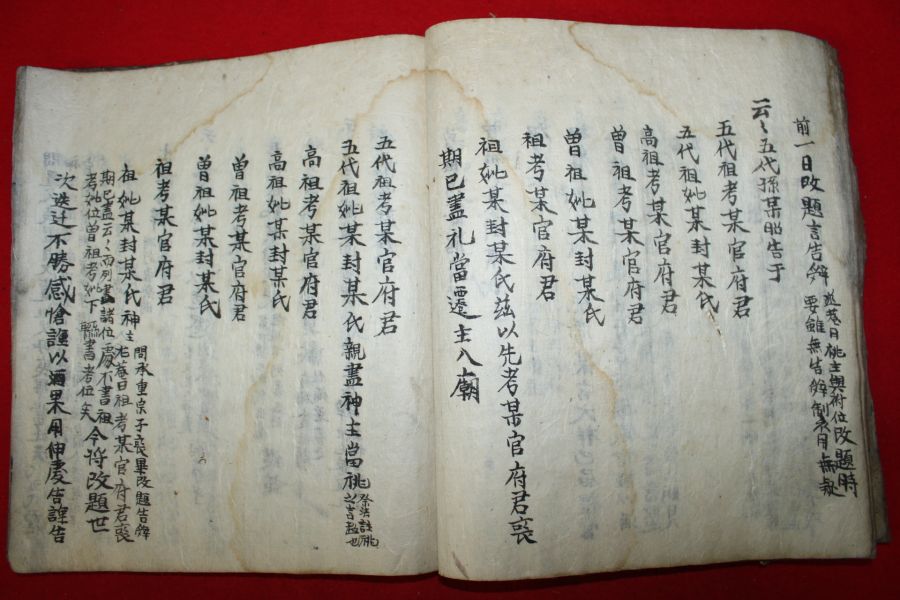 前一日改題言告辤
遂菴曰祧主與祔位改題時
要雖無告辤制表用無疑
云〻五代孫某昭告于
五代祖考某官府君
五代祖妣某封某氏
高祖考某官府君
曾祖考某官府君
曾祖妣某封某氏
祖考某官府君
祖妣某封某氏玆以先考某官府君喪
期已盡礼當遷主入廟
五代祖考某官府君
五代祖妣某封某氏親盡神主當祧
祭法註祧
之言超也
高祖考某官府君
高祖妣某封某氏
曾祖考某官府君
曾祖妣某封某氏
祖考某官府君
祖妣某封某氏神主
問承重宗子喪畢改題告辤
尤菴曰祖考某官府君喪
期已盡云〻而列書諸位處不書祖
考妣位曾祖考妣下書考位矣
今將改題世
次迭迁不勝感愴謹以酒果用伸虔告謹告